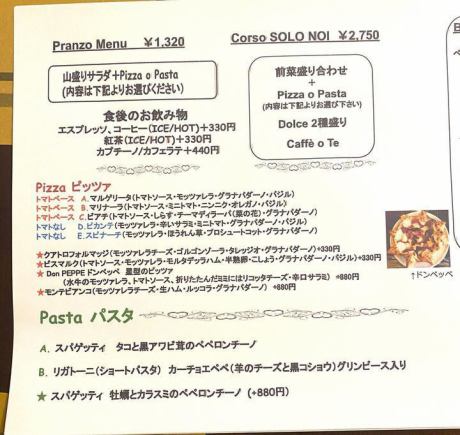 Pranzo Menu ¥1,320
山盛りサラダ+Pizza o Pasta
(内容は下記よりお選びください)
食後のお飲み物
エスプレッソ、コーヒー(ICE/HOT)+330円
紅茶(ICE/HOT)+330円
カプチーノ/カフェラテ+440円
Corso SOLO NOI ¥2,750
前菜盛り合わせ
+
Pizza o Pasta
(内容は下記よりお選び下さい)
Dolce 2種盛り
Caffè o Te
Pizza ピッツァ
トマトベース A.マルゲリータ(トマトソース・モッツァレラ・グラナパダーノ・バジル)
トマトベース B.マリナーラ(トマトソース・ミニトマト・ニンニク・オレガノ・バジル)
トマトベース C.ビアチ(トマトソース・しらす・チーマディラーパ(菜の花)・グラナパダーノ)
トマトなし D.ピカンテ(モッツァレラ・辛いサラミ・ミニトマト・グラナパダーノ)
トマトなし E.スピナーチ(モッツァレラ・ほうれん草・プロシュートコット・グラナパダーノ)
★クアトロフォルマッジ(モッツァレラチーズ・ゴルゴンゾーラ・タレッジオ・グラナパダーノ)+330円
★ビスマルク(トマトソース・モッツァレラ・モルタデッラハム・半熟卵・こしょう・グラナパダーノ・バジル)+330円
★ Don PEPPE ドンペッペ 星型のピッツァ
(水牛のモッツァレラ、トマトソース、折りたたんだミミにはリコッタチーズ・辛口サラミ) +880円
★モンテビアンコ(モッツァレラチーズ・生ハム・ルッコラ・グラナパダーノ) +880円
↑ドンペッペ
Pasta パスタ
A. スパゲッティ タコと黒アワビ茸のペペロンチーノ
B. リガトーニ(ショートパスタ) カーチョエペペ(羊のチーズと黒コショウ)グリンピース入り
★ スパゲッティ 牡蠣とカラスミのペペロンチーノ (+880円)